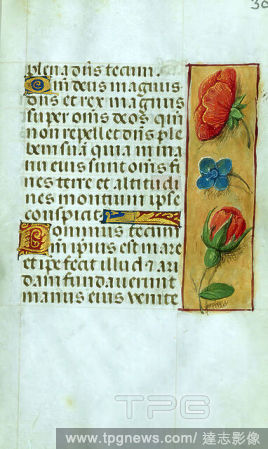 30
plena dns tecum.
Qm deus magnus
dns et rex magnus
super oms deos qm
non repellet dns ple
bem suā quia in ma
nu eius sunt oms fi
nes terre et altitudi
nes montium ipse
conspicit
Dominus tecum
Qm ipius est mare
et ipe fecit illud et ari
dam fundauerunt
manus eius venite
TPG
www.tpgnews.com/達志影像